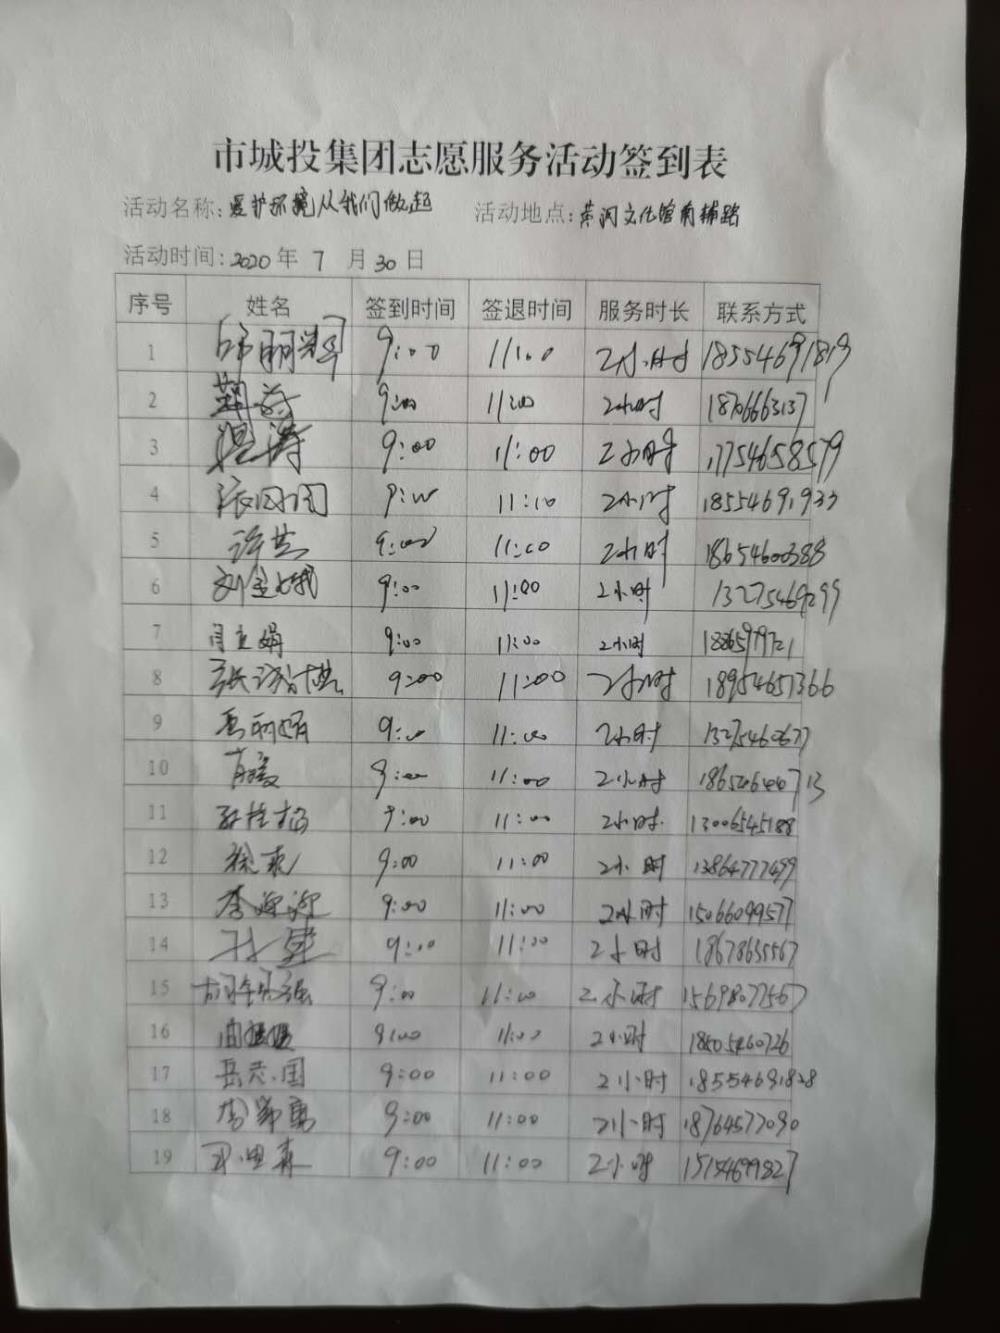 市城投集团志愿服务活动签到表
活动名称:爱护环境从我们做起 活动地点:黄河文化馆南辅路
活动时间:2020年 7 月 30 日
序号 姓名 签到时间 签退时间 服务时长 联系方式
1 9:00 11:00 2小时 18554691819
2 9:00 11:00 2小时 18706663137
3 温涛 9:00 11:00 2小时 17754658579
4 9:00 11:00 2小时 18554691933
5 许芸 9:00 11:00 2小时 18654600388
6 刘金娥 9:00 11:00 2小时 13275469299
7 9:00 11:00 2小时
8 9:00 11:00 2小时 18954651366
9 9:00 11:00 2小时 13275460677
10 9:00 11:00 2小时
11 9:00 11:00 2小时 13006545188
12 9:00 11:00 2小时 13864777499
13 李迎迎 9:00 11:00 2小时 15066099577
14 9:00 11:00 2小时 18678635567
15 9:00 11:00 2小时 15698077567
16 9:00 11:00 2小时 18505460726
17 岳志国 9:00 11:00 2小时 18554691828
18 9:00 11:00 2小时 18764577090
19 9:00 11:00 2小时 15154699827